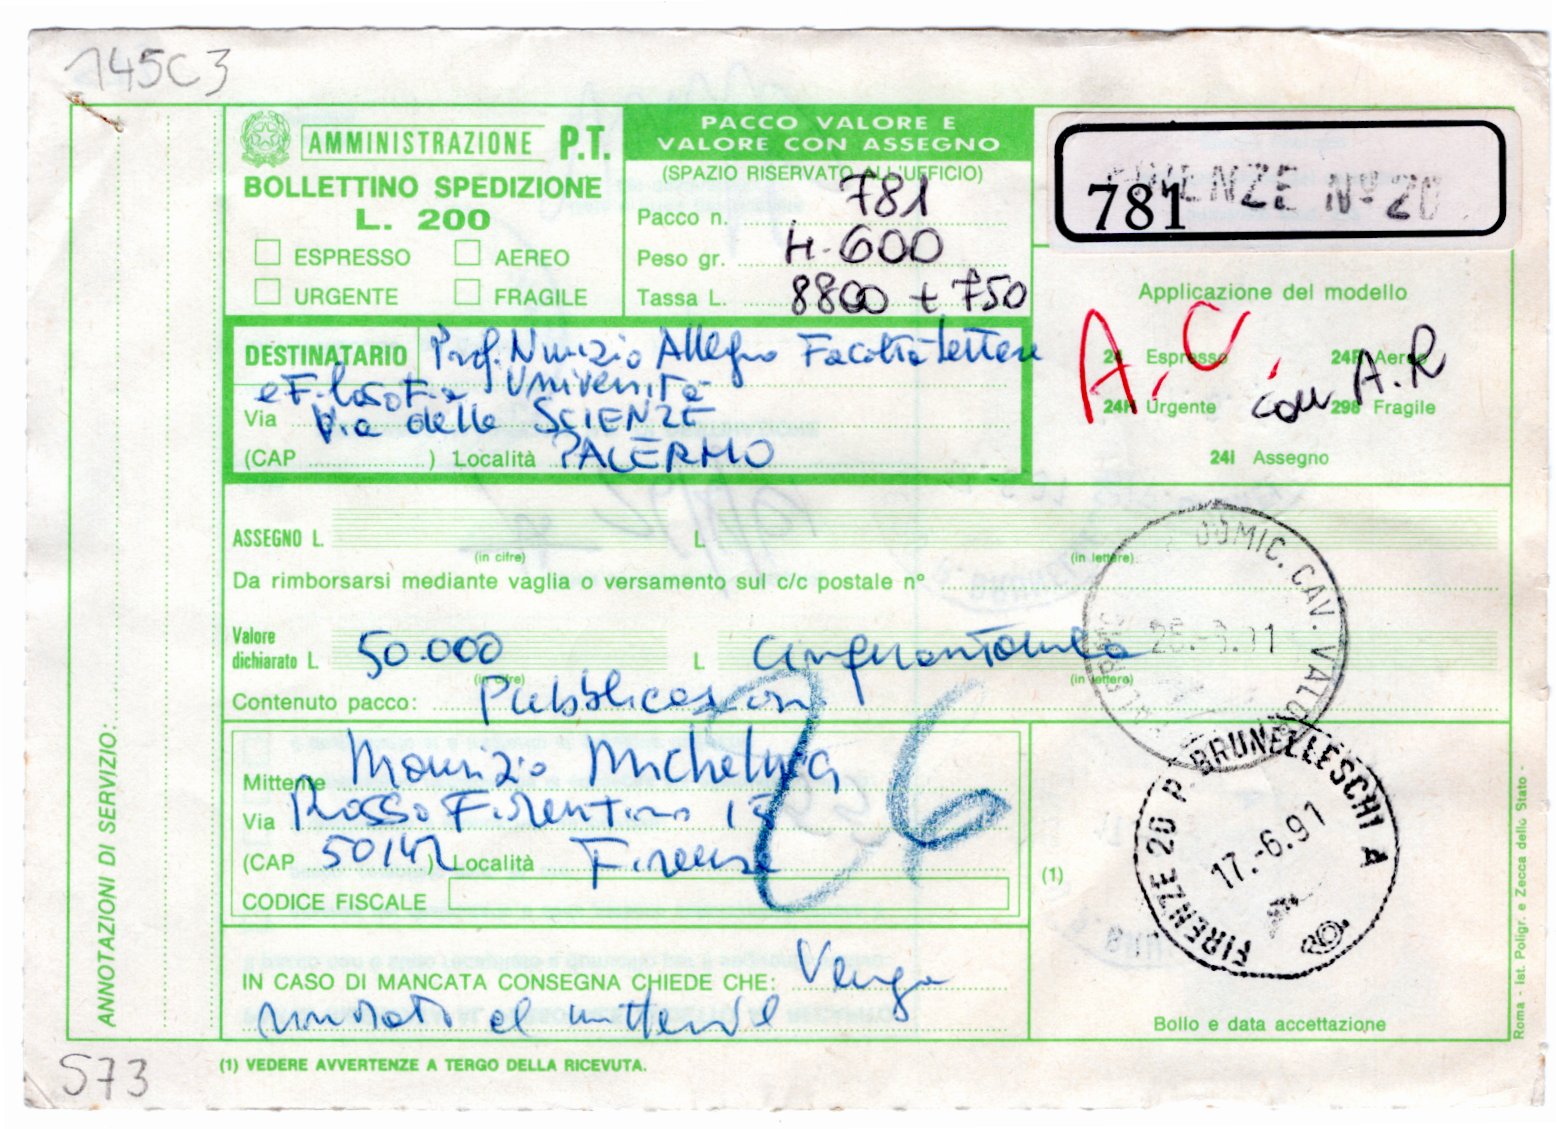 145C3
AMMINISTRAZIONE P.T.
BOLLETTINO SPEDIZIONE
L. 200
ESPRESSO AEREO
URGENTE FRAGILE
PACCO VALORE E
VALORE CON ASSEGNO
(SPAZIO RISERVATO ALL'UFFICIO)
Pacco n. 781
Peso gr. 4.600
Tassa L. 8800 + 750
781 FIRENZE Nº 20
Applicazione del modello
24 Espresso 24F Aereo
24H Urgente 298 Fragile
24I Assegno
A.C. con A.R
DESTINATARIO Prof. Nunzio Allegro Facoltà Lettere
e Filosofia Università
Via Via delle SCIENZE
(CAP ) Località PALERMO
ASSEGNO L. L
(in cifre) (in lettere)
Da rimborsarsi mediante vaglia o versamento sul c/c postale n°
Valore
dichiarato L. 50.000 L Cinquantamila
(in cifre) (in lettere)
Contenuto pacco: Pubblicazioni
Mittente Maurizio Michelucci
Via Rosso Fiorentino 13
(CAP 50142 ) Località Firenze
CODICE FISCALE
26
(1)
IN CASO DI MANCATA CONSEGNA CHIEDE CHE: Venga
rinviato al mittente
PALERMO DOMIC. CAV. VALO
FIRENZE 20 P. BRUNELLESCHI A
17.-6.91
Bollo e data accettazione
ANNOTAZIONI DI SERVIZIO:
Roma - Ist. Poligr. e Zecca dello Stato -
(1) VEDERE AVVERTENZE A TERGO DELLA RICEVUTA.
S73